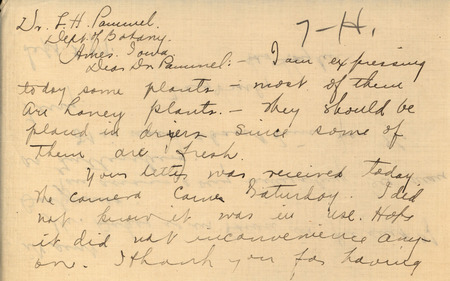 Dr. L. H. Pammel. 7-H.
Dept of Botany.
Ames Iowa.
Dear Dr Pammel:- I am expressing
today some plants - most of them
are honey plants. - They should be
placed in dryers since some of
them are fresh.
Your letter was received today
the camera came Saturday. I did
not know it was in use. Hope
it did not inconvenience any-
one. I thank you for having